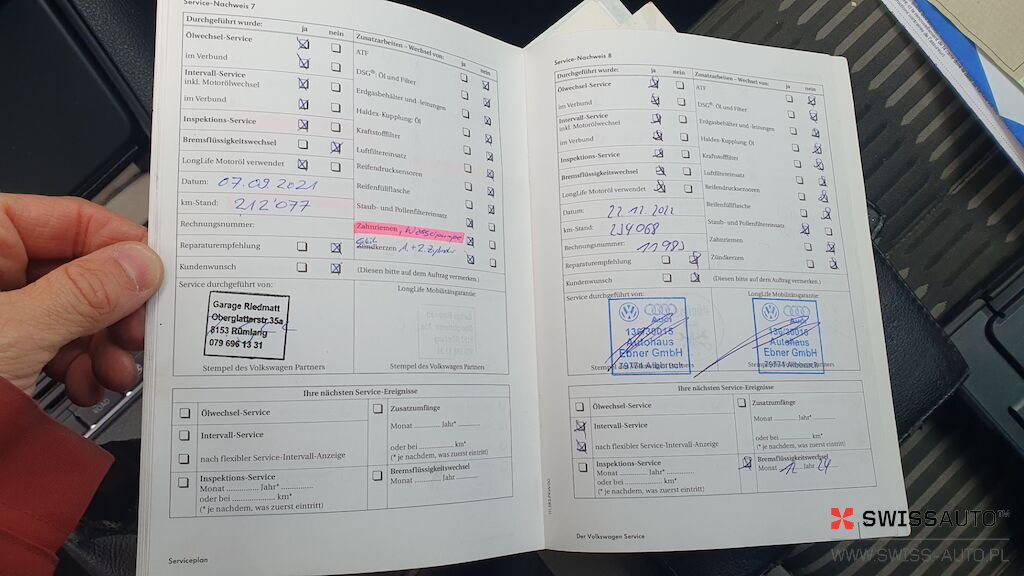 Service-Nachweis 7
Durchgeführt wurde: ja nein
Ölwechsel-Service
im Verbund
Intervall-Service
inkl. Motorölwechsel
im Verbund
Inspektions-Service
Bremsflüssigkeitswechsel
LongLife Motoröl verwendet
Datum: 07.09 2021
km-Stand: 212'077
Rechnungsnummer:
Reparaturempfehlung
Kundenwunsch
Zusatzarbeiten – Wechsel von: ja nein
ATF
DSG®: Öl und Filter
Erdgasbehälter und -leitungen
Haldex-Kupplung: Öl
Kraftstofffilter
Luftfiltereinsatz
Reifendrucksensoren
Reifenfüllflasche
Staub- und Pollenfiltereinsatz
Zahnriemen, Wasserpumpe
Zündkerzen 1+2. Zylinder
(Diesen bitte auf dem Auftrag vermerken.)
Service durchgeführt von:
Garage Riedmatt
Oberglatterstr. 35a
8153 Rümlang
079 696 13 31
Stempel des Volkswagen Partners
LongLife Mobilitätsgarantie:
Stempel des Volkswagen Partners
Ihre nächsten Service-Ereignisse
Ölwechsel-Service
Intervall-Service
nach flexibler Service-Intervall-Anzeige
Inspektions-Service
Monat .............. Jahr* ..............
oder bei .................. km*
(* je nachdem, was zuerst eintritt)
Zusatzumfänge
Monat .............. Jahr* ..............
oder bei .................. km*
(* je nachdem, was zuerst eintritt)
Bremsflüssigkeitswechsel
Monat .............. Jahr ..............
Serviceplan
Service-Nachweis 8
Durchgeführt wurde: ja nein
Ölwechsel-Service
im Verbund
Intervall-Service
inkl. Motorölwechsel
im Verbund
Inspektions-Service
Bremsflüssigkeitswechsel
LongLife Motoröl verwendet
Datum: 22.12.2022
km-Stand: 234068
Rechnungsnummer: 11983
Reparaturempfehlung
Kundenwunsch
Zusatzarbeiten – Wechsel von: ja nein
ATF
DSG®: Öl und Filter
Erdgasbehälter und -leitungen
Haldex-Kupplung: Öl
Kraftstofffilter
Luftfiltereinsatz
Reifendrucksensoren
Reifenfüllflasche
Staub- und Pollenfiltereinsatz
Zahnriemen
Zündkerzen
(Diesen bitte auf dem Auftrag vermerken.)
Service durchgeführt von:
Audi
136/30015
Autohaus
Ebner GmbH
79774 Albbruck
Stempel des Volkswagen Partners
LongLife Mobilitätsgarantie:
Audi
136/30015
Autohaus
Ebner GmbH
79774 Albbruck
Stempel des Volkswagen Partners
Ihre nächsten Service-Ereignisse
Ölwechsel-Service
Intervall-Service
nach flexibler Service-Intervall-Anzeige
Inspektions-Service
Monat .............. Jahr* ..............
oder bei .................. km*
(* je nachdem, was zuerst eintritt)
Zusatzumfänge
Monat .............. Jahr* ..............
oder bei .................. km*
(* je nachdem, was zuerst eintritt)
Bremsflüssigkeitswechsel
Monat 12 Jahr 24
Der Volkswagen Service
SWISSAUTO™
WWW.SWISS-AUTO.PL